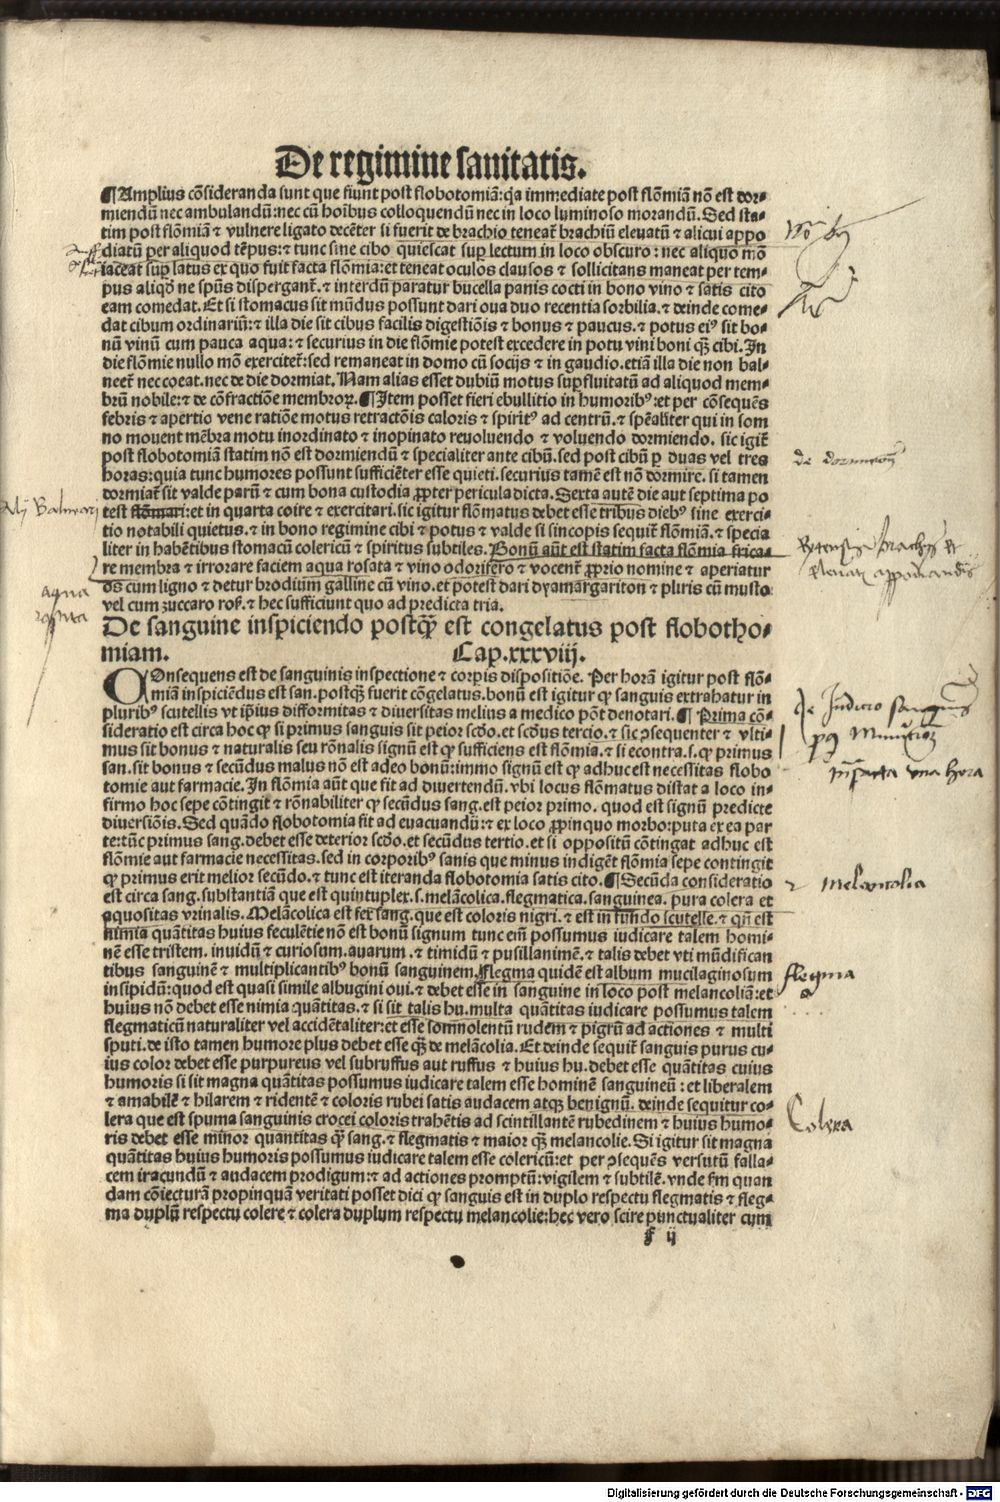 De regimine sanitatis.
¶Amplius cōsideranda sunt que fiunt post flobotomiā: qꝛ immediate post flōmiā nō est dor⸗
miendū nec ambulandū: nec cū hoībus colloquendū nec in loco luminoso morandū. Sed sta⸗
tim post flōmiā ⁊ vulnere ligato decēter si fuerit de brachio teneat̄ brachiū eleuatū ⁊ alicui appo
diatū per aliquod tēpus: ⁊ tunc sine cibo quiescat suꝑ lectum in loco obscuro: nec aliquo mō
iaceat suꝑ latus ex quo fuit facta flōmia: et teneat oculos clausos ⁊ sollicitans maneat per tem⸗
pus aliqđ ne spūs dispergant̄. ⁊ interdū paratur bucella panis cocti in bono vino ⁊ satis cito
eam comedat. Et si stomacus sit mūdus possunt dari oua duo recentia sorbilia. ⁊ deinde come⸗
dat cibum ordinariū: ⁊ illa die sit cibus facilis digestiōis ⁊ bonus ⁊ paucus. ⁊ potus eiꝰ sit bo⸗
nū vinū cum pauca aqua: ⁊ securius in die flōmie potest excedere in potu vini boni qꝫ̄ cibi. In
die flōmie nullo mō exercitet̄: sed remaneat in domo cū socijs ⁊ in gaudio. etiā illa die non bal⸗
neet̄ nec coeat. nec de die dormiat. Nam alias esset dubiū motus suꝑfluitatū ad aliquod mem⸗
brū nobile: ⁊ de cōfractiōe membroꝝ. ¶Item posset fieri ebullitio in humoribꝰ: et per cōsequēs
febris ⁊ apertio vene ratiōne motus retractōis caloris ⁊ spiritꝰ ad centrū. ⁊ spēaliter qui in som
no mouent mēbra motu inordinato ⁊ inopinato reuoluendo ⁊ voluendo dormiendo. sic igit̄
post flobotomiā statim nō est dormiendū ⁊ specialiter ante cibū. sed post cibū ꝑ duas vel tres
horas: quia tunc humores possunt sufficiēter esse quieti. securius tamē est nō dormire. si tamen
dormiat̄ sit valde parū ⁊ cum bona custodia ꝓpter pericula dicta. Sexta autē die aut septima po
test flōmari: et in quarta coire ⁊ exercitari. sic igitur flōmatus debet esse tribus diebꝰ sine exerci⸗
tio notabili quietus. ⁊ in bono regimine cibi ⁊ potus ⁊ valde si sincopis sequit̄ flōmiā. ⁊ specia
liter in habētibus stomacū colericū ⁊ spiritus subtiles. Bonū aūt est statim facta flōmia frica⸗
re membra ⁊ irrorare faciem aqua rosata ⁊ vino odorifero ⁊ vocent̄ ꝓprio nomine ⁊ aperiatur
os cum ligno ⁊ detur brodium galline cū vino. et potest dari dyamargariton ⁊ pluris cū musto
vel cum zuccaro ros. ⁊ hec sufficiunt quo ad predicta tria.
De sanguine inspiciendo postqꝫ̄ est congelatus post flobotho⸗
miam. Cap. xxxviij.
COnsequens est de sanguinis inspectione ⁊ corpis dispositiōe. Per horā igitur post flō⸗
miā inspiciēdus est san. postqꝫ fuerit cōgelatus. bonū est igitur ꝙ sanguis extrahatur in
pluribꝰ scutellis vt ipīus difformitas ⁊ diuersitas melius a medico pōt denotari. ¶ Prima cō⸗
sideratio est circa hoc ꝙ si primus sanguis sit peior scđo. et scđus tercio. ⁊ sic ꝯsequenter ⁊ vlti⸗
mus sit bonus ⁊ naturalis seu rōnalis signū est ꝙ sufficiens est flōmia. ⁊ si econtra. s. ꝙ primus
san. sit bonus ⁊ secūdus malus nō est adeo bonū: immo signū est ꝙ adhuc est necessitas flobo
tomie aut farmacie. In flōmia aūt que fit ad diuertendū. vbi locus flōmatus distat a loco in⸗
firmo hoc sepe cōtingit ⁊ rōnabiliter ꝙ secūdus sang. est peior primo. quod est signū predicte
diuersiōis. Sed quādo flobotomia fit ad euacuandū: ⁊ ex loco ꝓpinquo morbo: puta ex ea par
te: tūc primus sang. debet esse deterior scđo. et secūdus tertio. et si oppositū cōtingat adhuc est
flōmie aut farmacie necessitas. sed in corporibꝰ sanis que minus indigēt flōmia sepe contingit
ꝙ primus erit melior secūdo. ⁊ tunc est iteranda flobotomia satis cito. ¶Secūda consideratio
est circa sang. substantiā que est quintuplex. s. melācolica. flegmatica. sanguinea. pura colera et
aquositas vrinalis. Melācolica est fex sang. que est coloris nigri. ⁊ est in fundo scutelle. ⁊ qn̄ est
nimia quātitas huius feculētie nō est bonū signum tunc em̄ possumus iudicare talem homi⸗
nē esse tristem. inuidū ⁊ curiosum. auarum. ⁊ timidū ⁊ pusillanimē. ⁊ talis debet vti mūdifican
tibus sanguinē ⁊ multiplicantibꝰ bonū sanguinem. flegma quidē est album mucilaginosum
insipidū: quod est quasi simile albugini oui. ⁊ debet esse in sanguine in loco post melancoliā: et
huius nō debet esse nimia quātitas. ⁊ si sit talis hu. multa quātitas iudicare possumus talem
flegmaticū naturaliter vel accidētaliter: et esse somnolentū rudem ⁊ pigrū ad actiones ⁊ multi
sputi. de isto tamen humore plus debet esse qꝫ̄ de melācolia. Et deinde sequit̄ sanguis purus cu⸗
ius color debet esse purpureus vel subruffus aut ruffus ⁊ huius hu. debet esse quātitas cuius
humoris si sit magna quātitas possumus iudicare talem esse hominē sanguineū: et liberalem
⁊ amabilē ⁊ hilarem ⁊ ridentē ⁊ coloris rubei satis audacem atqꝫ benignū. deinde sequitur co⸗
lera que est spuma sanguinis crocei coloris trahētis ad scintillantē rubedinem ⁊ huius humo⸗
ris debet esse minor quantitas qꝫ̄ sang. ⁊ flegmatis ⁊ maior qꝫ̄ melancolie. Si igitur sit magna
quātitas huius humoris possumus iudicare talem esse colericū: et per ꝯsequēs versutū falla⸗
cem iracundū ⁊ audacem prodigum: ⁊ ad actiones promptū: vigilem ⁊ subtilē. vnde fm quan
dam cōiecturā propinquā veritati posset dici ꝙ sanguis est in duplo respectu flegmatis ⁊ fleg⸗
ma duplū respectu colere ⁊ colera duplum respectu melancolie: hec vero scire punctualiter cum
f ij
de
aqua
rosata
de Iudicio sanguinis
facta vna hora
Melancolia
flegma
Colera
Digitalisierung gefördert durch die Deutsche Forschungsgemeinschaft - DFG